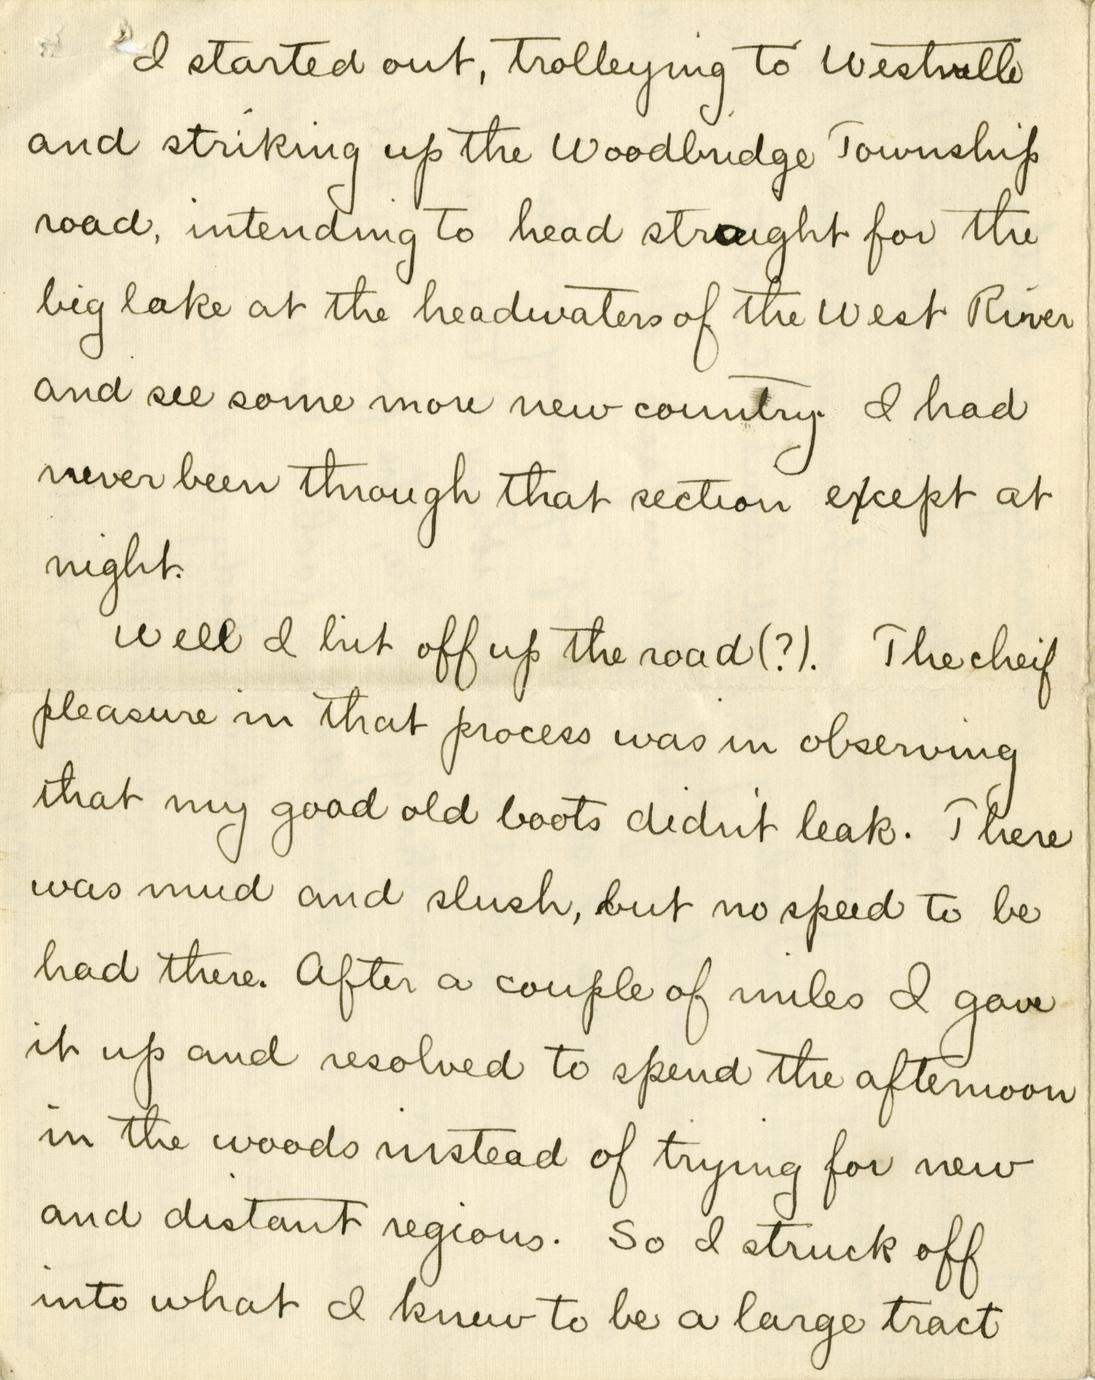 I started out, trolleying to Westville
and striking up the Woodbridge Township
road, intending to head straight for the
big lake at the headwaters of the West River
and see some more new country. I had
never been through that section except at
night.
Well I hit off up the road(?). The cheif
pleasure in that process was in observing
that my good old boots didn't leak. There
was mud and slush, but no speed to be
had there. After a couple of miles I gave
it up and resolved to spend the afternoon
in the woods instead of trying for new
and distant regions. So I struck off
into what I knew to be a large tract